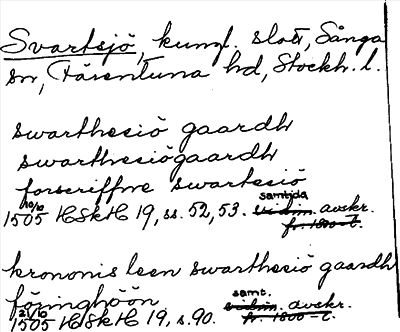 Svartsjö, kungl. slott, Sånga
sn, Färentuna hd, Stockh. l.
swarthesiö gaardh
swarthesiögaardh
forscriffne swartesiö
10/10 1505 HSkH 19, ss. 52, 53. samtida avskr.
krononis leen swarthesiö gaardh
föringhöön
21/10 1505 HSkH 19, s. 90. samt. avskr.